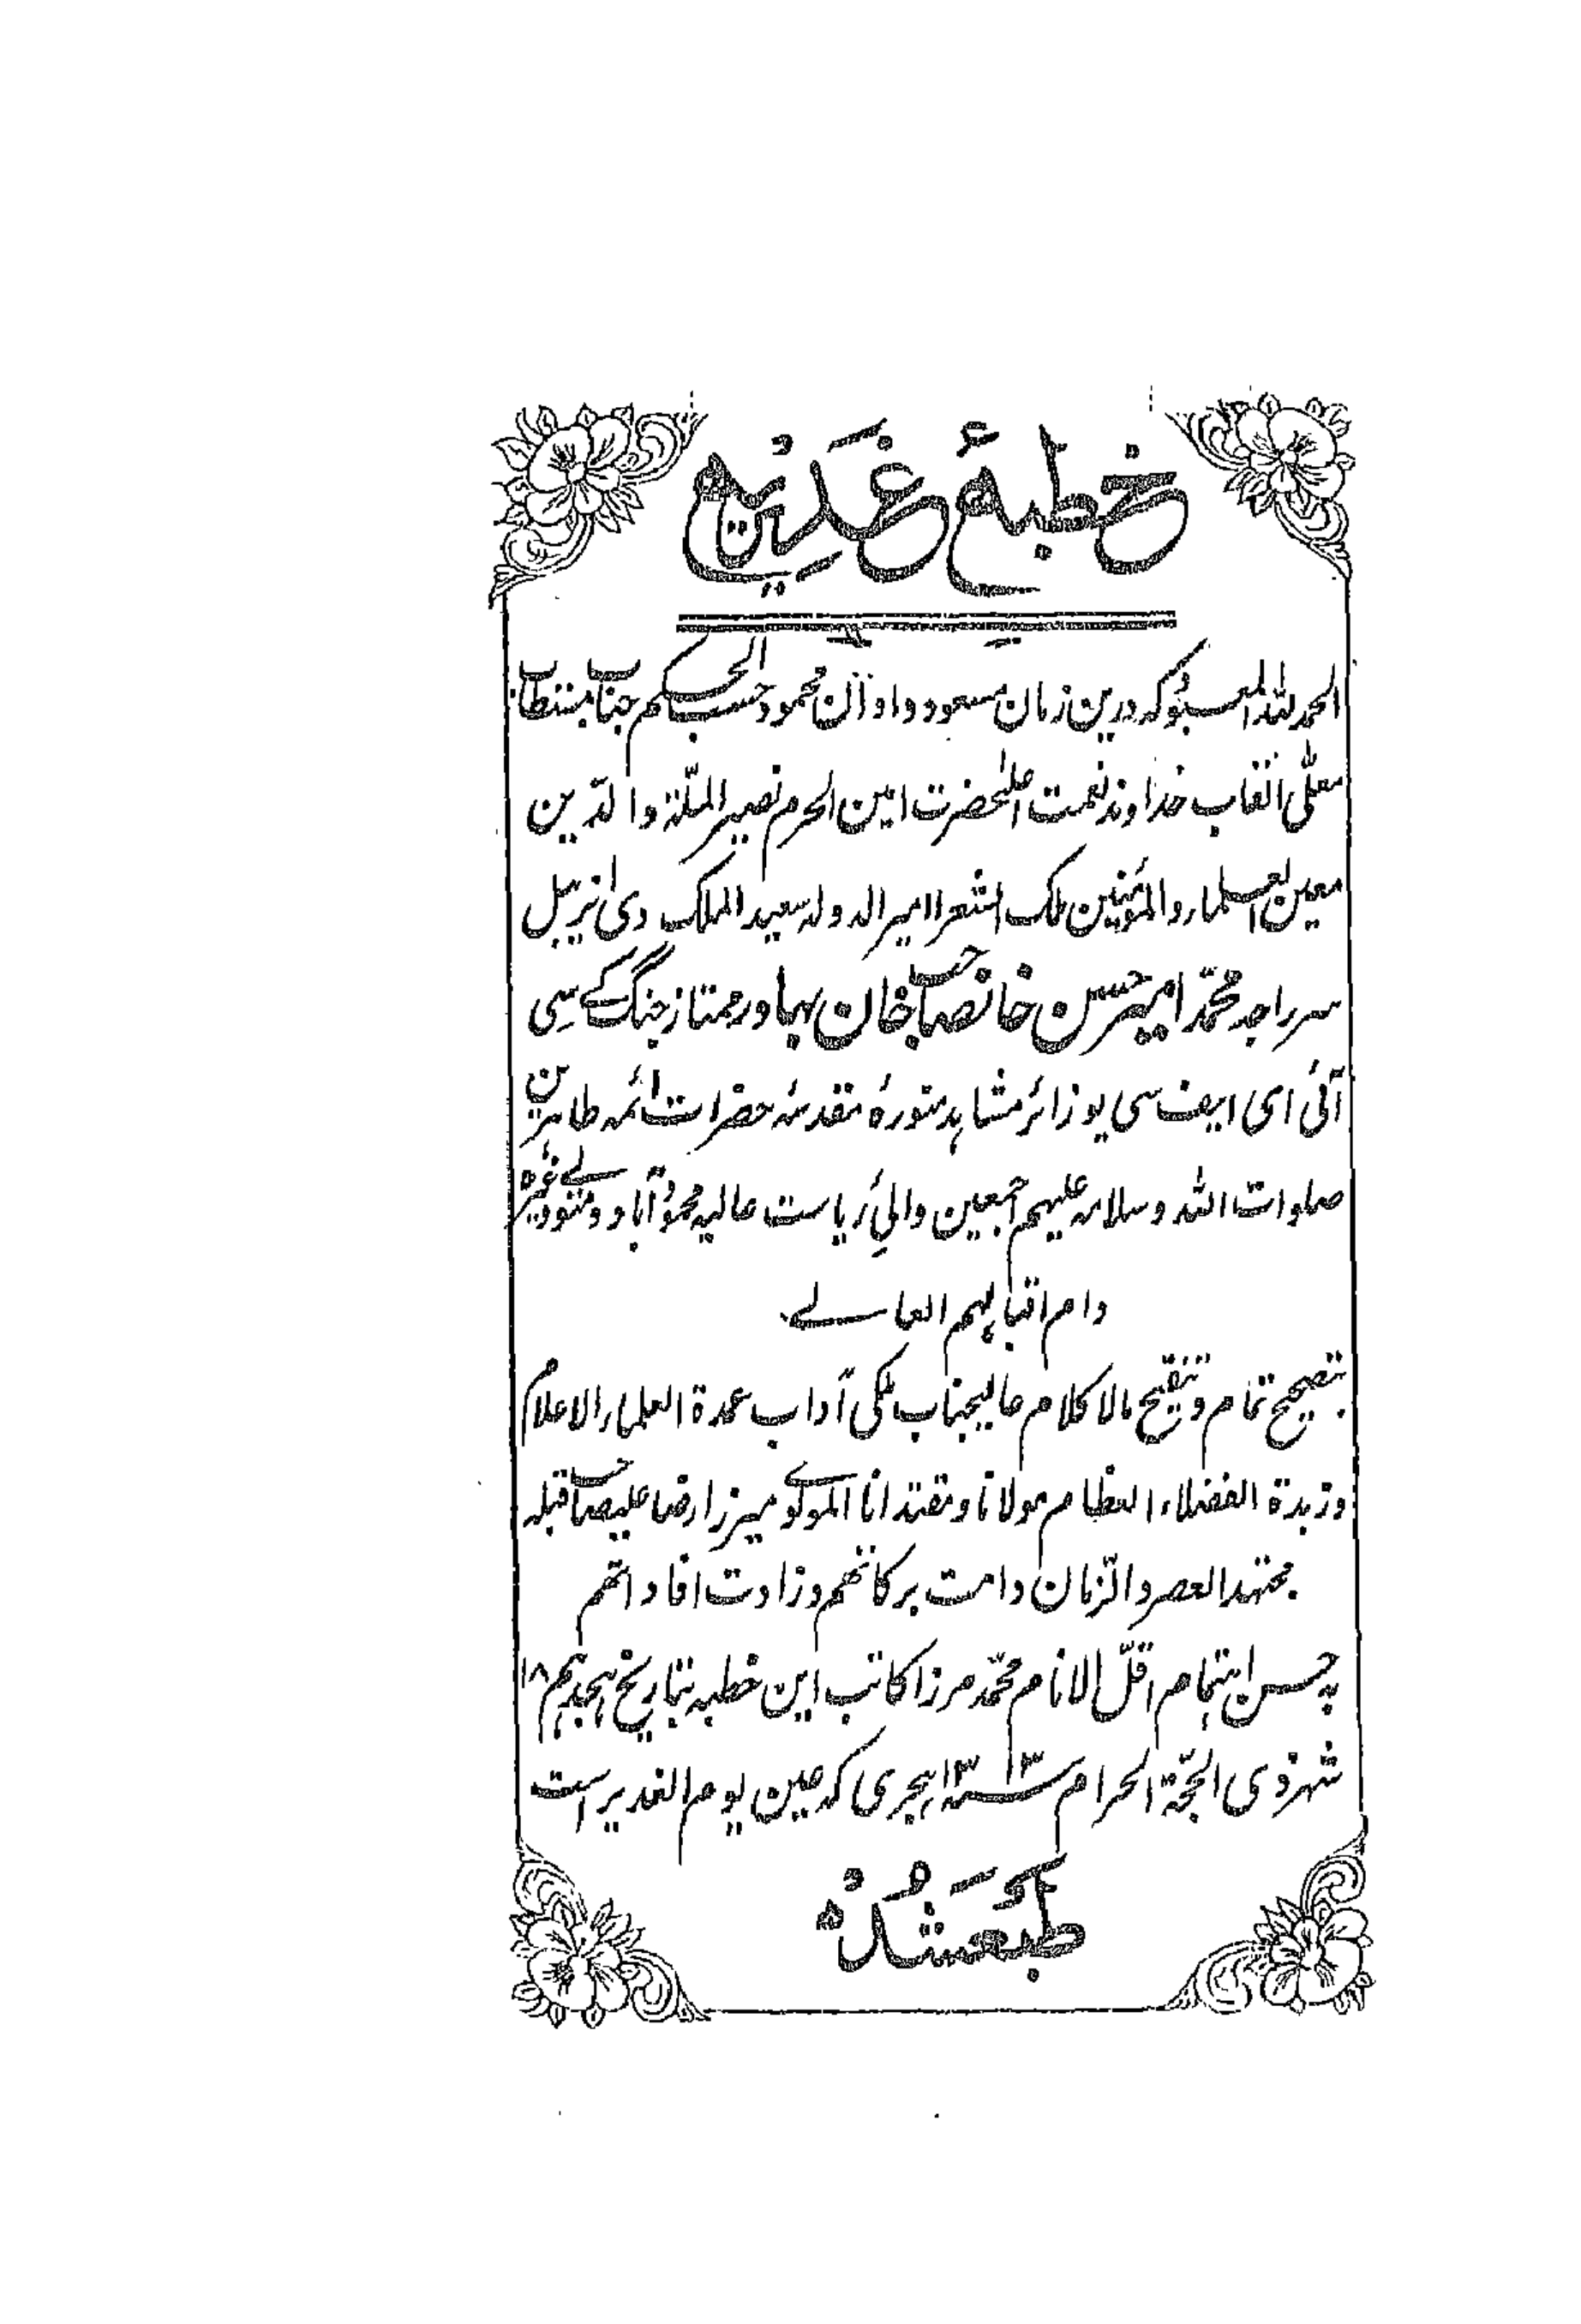 خطبۂ غَدِیْر
الحمد للہ المعبود کہ درین زمان مسعود و اوان محمود حسب الحکم جناب مستطاب
معلّٰی القاب خداوند نعمت اعلیٰحضرت امین الحرم نصیر الملّۃ والدّین
معین العلماء والمؤمنین ملک الشعرا امیر الدولہ سعید الملک دی انریبل
سر راجہ محمّد امیر حسن خانصاحب خان بہادر ممتاز جنگ کے سی
آئی ای ایف سی یو زائر مشاہد منورۂ مقدسۂ حضرات ائمہ طاہرین
صلوات اللہ وسلامہ علیہم اجمعین والیِ ریاست عالیہ محمودآباد و
دام اقبالہم العالے
بتصحیح تمام و تنقیح مالا کلام عالیجناب ملکی آداب عمدۃ العلماء الاعلام
وزبدۃ الفضلاء العظام مولانا و مقتدانا المولوے میرزا رضا علیصاحب قبلہ
مجتہد العصر والزّمان دامت برکاتھم وزادت افاداتھم
بحسن اہتمام اقلّ الانام محمّد مرزا کاتب این خطبہ بتاریخ ہیجدہم ۱۸
شہر ذی الحجّۃ الحرام سنہ ۱۳۱۳ ہجری کہ عین یوم الغدیر است
طَبع شُدْہ